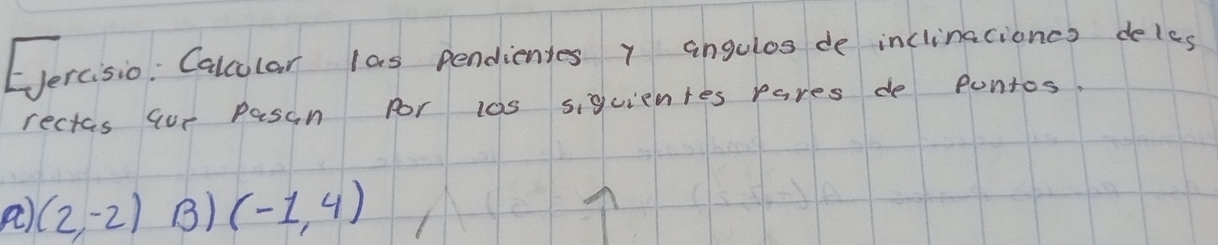 Ejercisio: Calcular las pendientes y angulos de inclinaciones de las
rectas que pasan por los siguientes pares de puntos.
A) (2,-2) B) (-1,4)